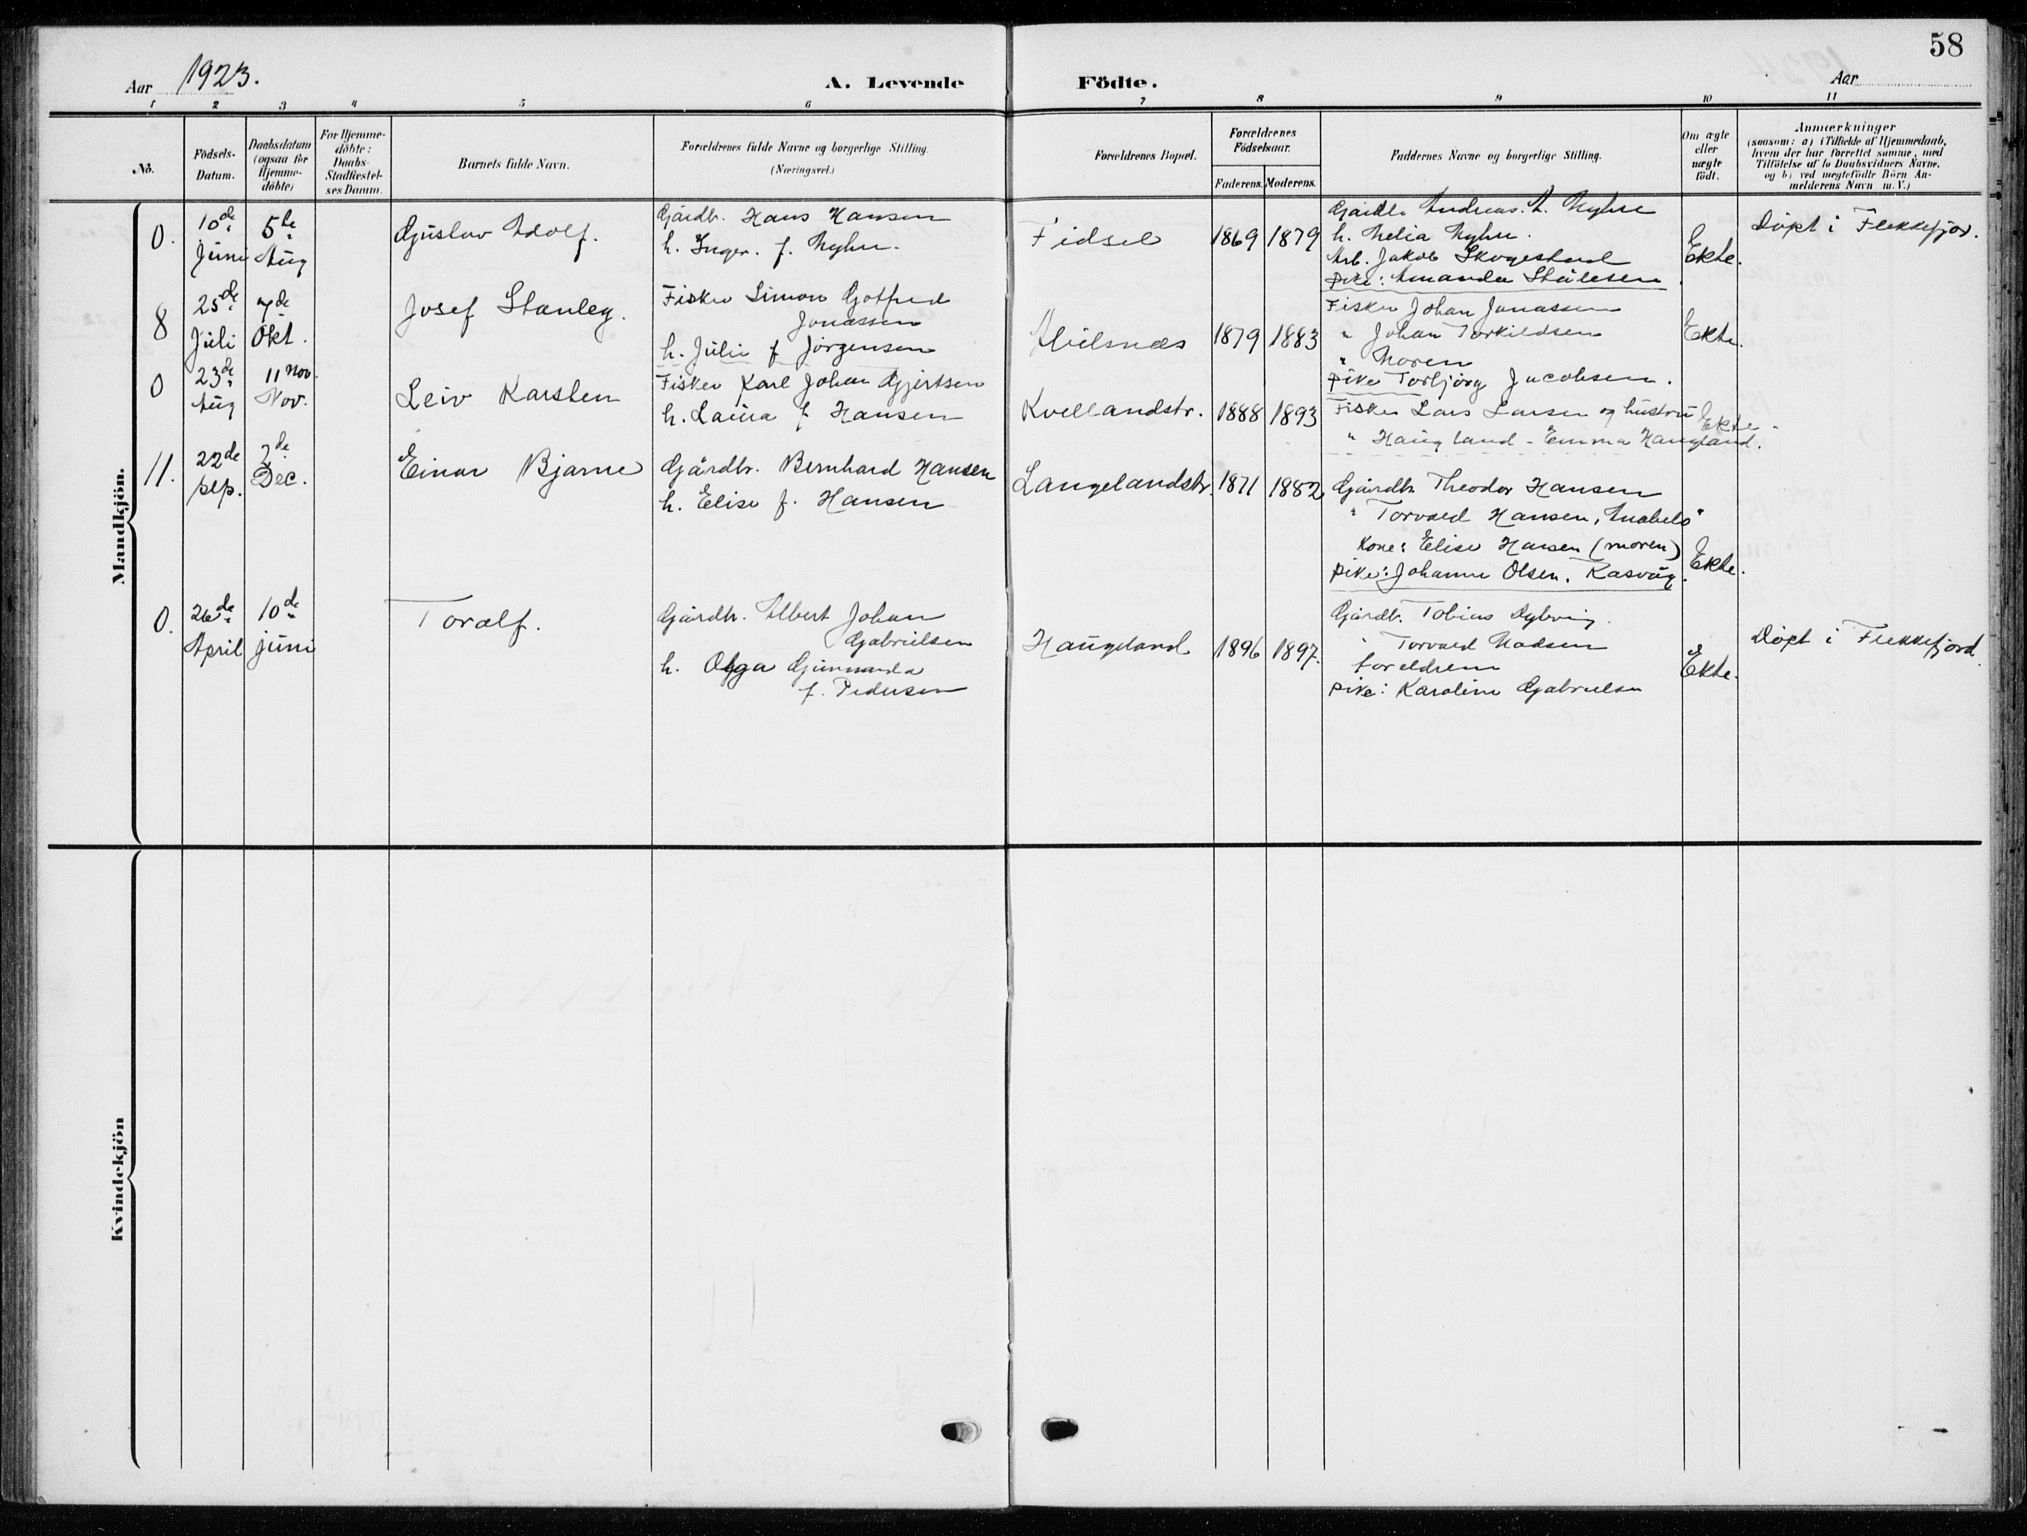 58
Aar 1923.
A. Levende Födte.
Aar
1 2 3 4 5 6 7 8 9 10 11
No.
Födsels-Datum.
Daabsdatum (ogsaa för Hjemme-döbte)
For Hjemme-döbte: Daabs-Stadfæstel-ses Datum.
Barnets fulde Navn.
Forældrenes fulde Navne og borgerlige Stilling.
(Næringsvei.)
Forældrenes Bopæl.
Forældrenes Födselsaar.
Faderens. Moderens.
Faddernes Navne og borgerlige Stilling.
Om ægte eller uægte födt.
Anmærkninger
(saasom: a) i Tilfælde af Hjemmedaab,
hvem der har forrettet samme, med
Tilföielse af to Daabsvidners Navne.
og b) ved uægtefödte Börn An-
melderens Navn m. V.)
Mandkjön.
0. 10de Juni 5te Aug
Gustav Adolf.
Gårdbr. Hans Hansen
h. Inger. f. Nyhus.
Fidsel 1869 1879
Gårdbr. Andreas. A.
h.
Arb. Jakob Skogestad
pike: Amanda Stålesen
Ekte.
Döpt i Flekkefjor.
8 25de Juli 7de Okt.
Josef Stanley.
Fisker Simon Gotfred
Jonassen
h. Julie f Jörgensen
1879 1883
Fisker Johan Jonassen
" Johan Torkildsen
" Moren
pike Torbjörg Jacobsen.
Ekte.
0 23de Aug 11 Nov. Nov.
Leiv Karsten
Fisker Karl Johan Gjertsen
h. Laura f Hansen
Kvellandstr. 1888 1893
Fisker Lars Larsen og hustru
" Haugland - Emma Haugland.
Ekte
11. 22de Sep. 2de Dec.
Einar Bjarne
Gårdbr. Bernhard Hansen
h. Elise f. Hansen
Langelandstr. 1871 1882
Gårdbr. Theodor Hansen
" Torvald Hansen,
Kone: Elise Hansen (moren)
pike: Johanne Olsen. Rasvåg.
Ekte.
0. 26de April 10de juni
Toralf.
Gårdbr. Albert Johan
Gabrielsen
h. Olga Gunnanda
f. Pedersen
Haugeland 1896 1897.
Gårdbr. Tobias Dybvig.
" Torvald Madsen
foreldrene
pike: Karoline Gabrielsen
Ekte.
Döpt i Flekkefjord.
Kvindekjön